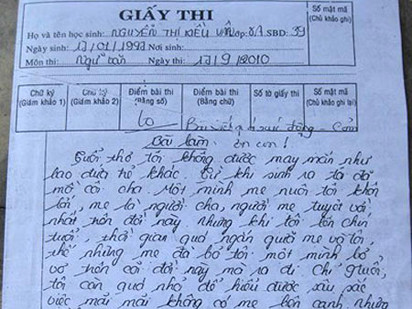 GIẤY THI
Họ và tên học sinh: NGUYỄN THỊ KIỀU VÂN Lớp: 8A SBD: 39
Số mật mã
(Chủ khảo ghi)
Ngày sinh: 17/01/1997 Nơi sinh:
Môn thi: Ngữ văn Ngày thi: 17/9/2010
Chữ ký
(Giám khảo 1)
Chữ ký
(Giám khảo 2)
Điểm bài thi
(Bằng số)
Điểm bài thi
(Bằng chữ)
Số tờ giấy thi
Số mật mã
(Chủ khảo ghi lại)
10
Bài viết xúc động - Cảm
ơn con!
Bài làm:
Tuổi thơ tôi không được may mắn như
bao đứa trẻ khác. Từ khi sinh ra tôi đã
mồ côi cha. Một mình mẹ nuôi tôi khôn
lớn, mẹ là người cha, người mẹ tuyệt vời
nhất trên đời này nhưng khi tôi lên chín
tuổi, thời gian quá ngắn giữa mẹ và tôi,
thế nhưng mẹ đã bỏ tôi một mình bơ
vơ trên cõi đời này mà ra đi. Chỉ 9 tuổi,
tôi còn quá nhỏ để hiểu được sâu sắc
việc mãi mãi không có mẹ bên cạnh nhưng